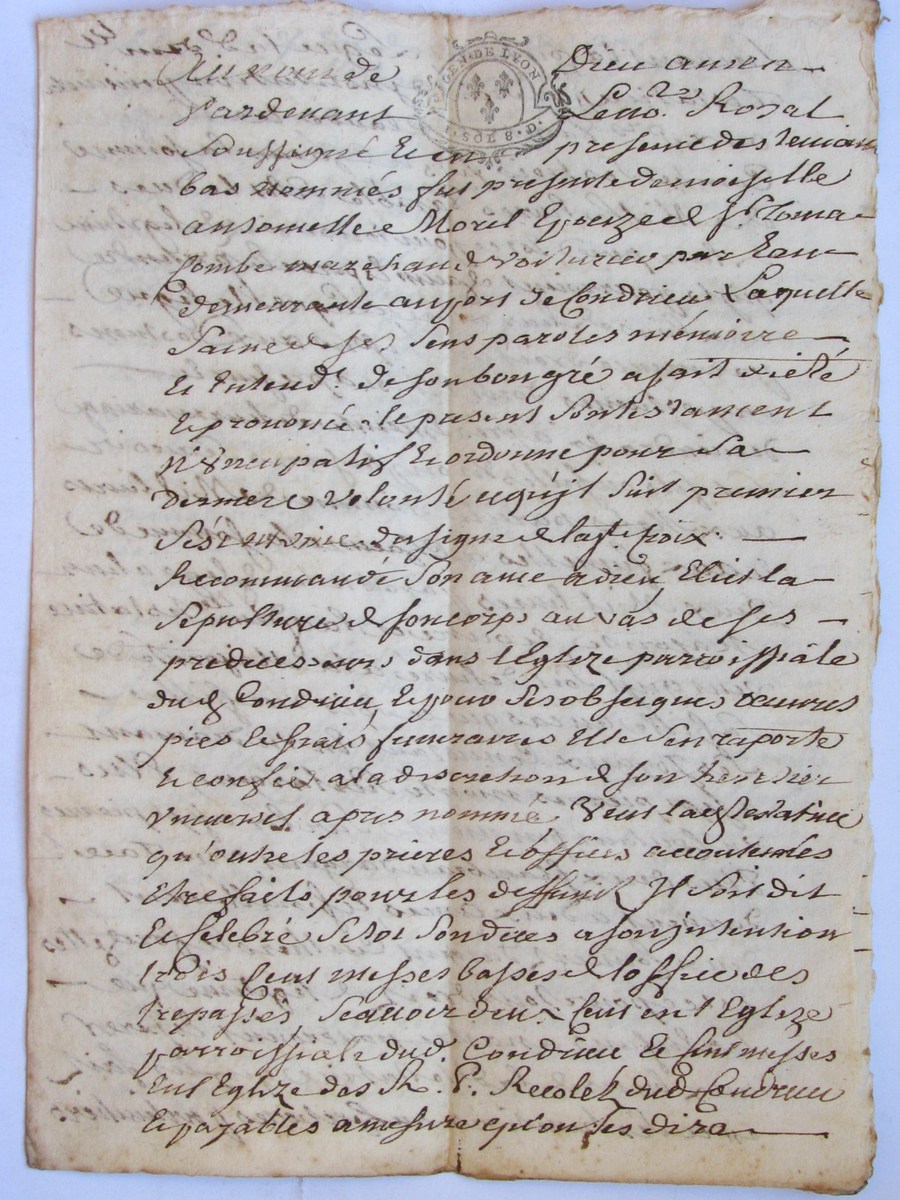 GEN. DE LYON
1. SOL 8. D.
Au nom de Dieu amen
Pardevant Le no.re Royal
Soussigné et en presence des temoins
bas nommés fut presente demoiselle
antoinette Morel Epouze de Sr Toma
Combe marchand voiturier par Eau
demeurante au port de Condrieu Laquelle
Saine de ses Sens paroles mémoire
et Entend.t de son bon gré a fait dicté
et prononcé le present Son testament
nuncupatif et ordonne pour Sa
derniere volonté ainsi qu'il Suit premier
S'est munie du signe de la ste Croix
Recommandé Son ame a dieu Elist la
Sepulture de son corps au vas de ses
predecesseurs dans l'Eglize parroissiale
dud Condrieu, et pour Ses obseques œuvres
pies et frais funeraires Elle s'en raporte
et confie a la discretion de son heritier
universel apres nommé Veut lad testatrice
qu'outre les prieres et offices accoutumés
Etre faits pour les deffunts Il Soit dit
et Celebré a son intention
trois Cent messes basses de l'office des
trepassés Scavoir deux Cent en l'Eglize
parroissiale dud. Condrieu et Cent messes
En l'Eglize des R. P. Recolets dud Condrieu
et payables a mesure qu'on les dira